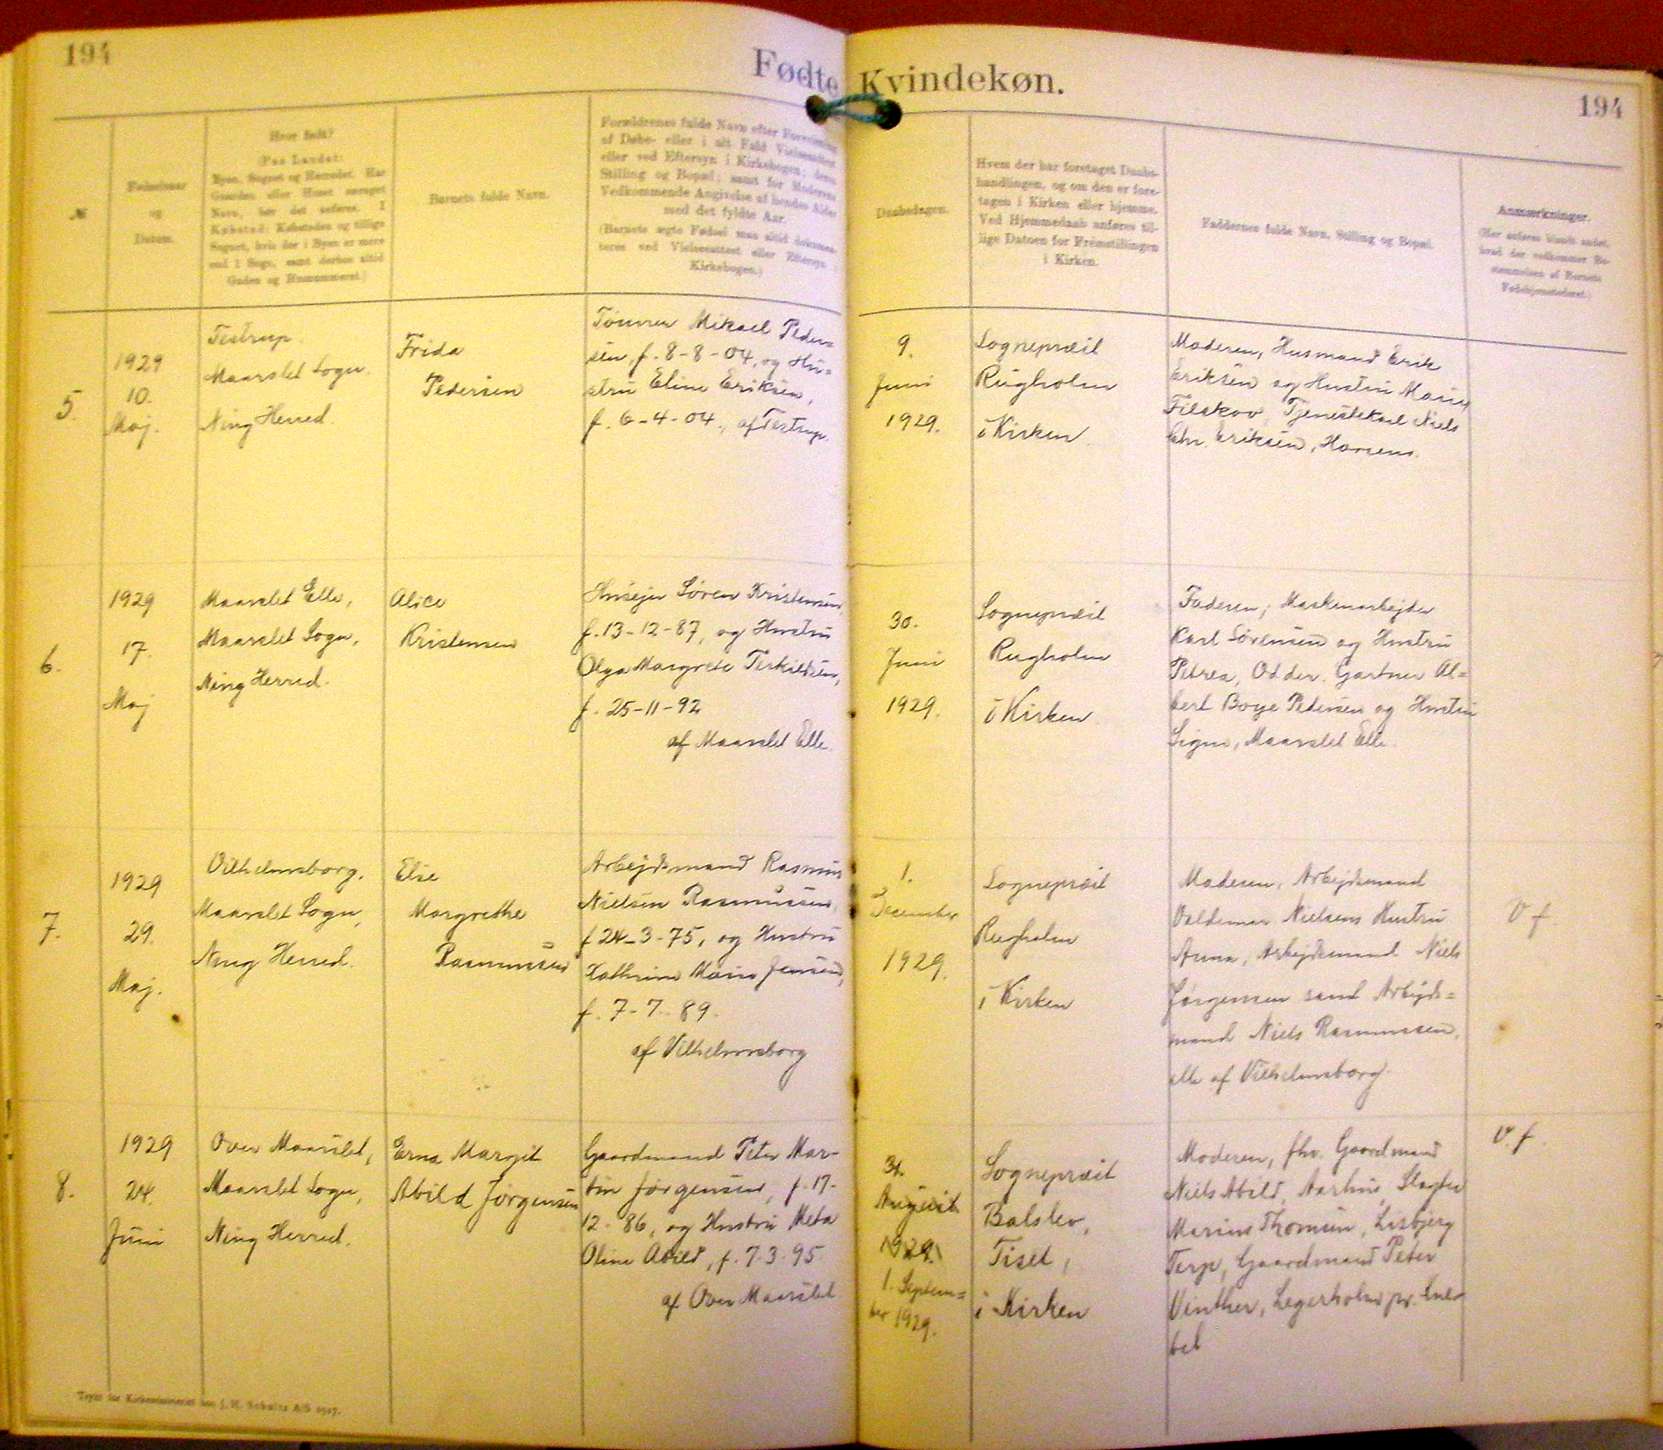 194
Fødte Kvindekøn.
194
№
Fødselsaar
og
Datum.
Hvor født?
(Paa Landet:
Byen, Sognet og Herredet. Har
Gaarden eller Huset særeget
Navn, bør det anføres. I
Købstad: Købstaden og tillige
Sognet, hvis der i Byen er mere
end 1 Sogn, samt derhos altid
Gaden og Husnummeret.)
Barnets fulde Navn.
Forældrenes fulde Navn efter
af Døbe- eller i alt Fald Vielsesattest
eller ved Eftersyn i Kirkebogen; deres
Stilling og Bopæl; samt for Moderens
Vedkommende Angivelse af hendes Alder
med det fyldte Aar.
(Barnets ægte Fødsel maa altid dokumen-
teres ved Vielsesattest eller Eftersyn i
Kirkebogen.)
Daabsdagen.
Hvem der har foretaget Daabs-
handlingen, og om den er fore-
tagen i Kirken eller hjemme.
Ved Hjemmedaab anføres til-
lige Datoen for Fremstillingen
i Kirken.
Faddernes fulde Navn, Stilling og Bopæl.
Anmærkninger.
(Her anføres blandt andet,
hvad der vedkommer Be-
stemmelsen af Barnets
Fødehjemsted.)
5.
1929
10.
Maj.
Testrup.
Maarslet Sogn.
Ning Herred.
Frida
Pedersen
Tømrer Mikael Peder=
sen, f. 8-8-04, og Hu=
stru Eline Eriksen,
f. 6-4-04., af Testrup.
9.
Juni
1929.
Sognepræst
Rugholm
i Kirken
Moderen, Husmand Erik
Eriksen og Hustru Marie
Filskov, Tjenestekarl Niels
Chr. Eriksen, Horsens.
6.
1929
17.
Maj
Maarslet Elle,
Maarslet Sogn,
Ning Herred.
Alice
Kristensen
Husejer Søren Kristensen,
f. 13-12-87, og Hustru
Olga Margrete Terkildsen,
f. 25-11-92
af Maarslet Elle.
30.
Juni
1929.
Sognepræst
Rugholm
i Kirken
Faderen, Maskinarbejder
Karl Sørensen og Hustru
Petrea, Odder. Gartner Al=
bert Boye Pedersen og Hustru
Signe, Maarslet Elle.
7.
1929
29.
Maj.
Vilhelmsborg.
Maarslet Sogn,
Ning Herred.
Else
Margrethe
Rasmussen
Arbejdsmand Rasmus
Nielsen Rasmussen,
f 24-3-75, og Hustru
Kathrine Marie Jensen,
f. 7-7-89.
af Vilhelmsborg
1.
December
1929.
Sognepræst
Rugholm
i Kirken
Moderen, Arbejdsmand
Valdemar Nielsens Hustru
Anna, Arbejdsmand Niels
Jørgensen samt Arbejds=
mand Niels Rasmussen,
alle af Vilhelmsborg.
V. f.
8.
1929
24.
Juni
Over Maarslet,
Maarslet Sogn,
Ning Herred.
Erna Margit
Abild Jørgensen
Gaardmand Peter Mar-
tin Jørgensen, f. 17-
12-86, og Hustru Meta
Oline Abild, f. 7-3-95
af Over Maarslet.
31.
August
1929.
1. Septem=
ber 1929.
Sognepræst
Balslev,
Tiset,
i Kirken
Moderen, fhv. Gaardmand
Niels Abild, Aarhus, Slagter
Marius Thomsen, Lisbjerg
Terp, Gaardmand Peter
Vinther, Legerholm pr.
V. f.
Trykt for Kirkeministeriet hos J. H. Schultz A/S 1927.